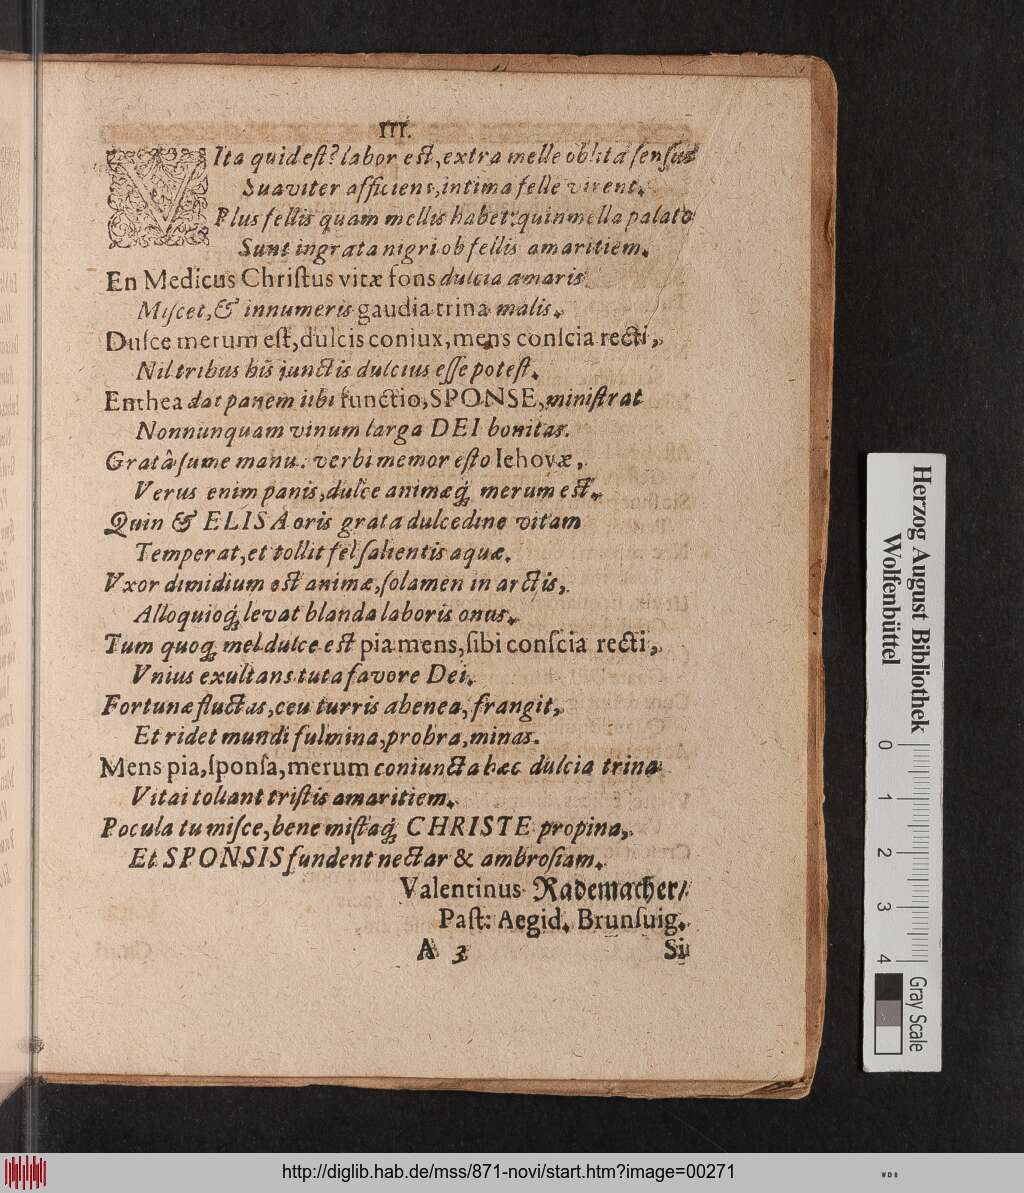 III.
VIta quid est? labor est, extra melle oblita sensus
Suaviter afficiens, intima felle virent.
Plus fellis quam mellis habet: quin mella palato
Sunt ingrata nigri ob fellis amaritiem.
En Medicus Christus vitæ fons dulcia amaris
Miscet, & innumeris gaudia trina malis.
Dulce merum est, dulcis coniux, mens conscia recti,
Nil tribus his junctis dulcius esse potest.
Enthea dat panem tibi functio, SPONSE, ministrat
Nonnunquam vinum larga DEI bonitas.
Gratâ sume manu. verbi memor esto Iehovæ,
Verus enim panis, dulce animæq́; merum est.
Quin & ELISA oris grata dulcedine vitam
Temperat, et tollit fel salientis aquæ.
Vxor dimidium est animæ, solamen in arctis,
Alloquioq́; levat blanda laboris onus.
Tum quoq; mel dulce est pia mens, sibi conscia recti,
Vnius exultans tuta favore Dei.
Fortunæ fluctus, ceu turris ahenea, frangit,
Et ridet mundi fulmina, probra, minas.
Mens pia, sponsa, merum coniuncta hæc dulcia trina
Vitai tollant tristis amaritiem.
Pocula tu misce, bene mistaq́; CHRISTE propina,
Et SPONSIS fundent nectar & ambrosiam.
Valentinus Rademacher/
Past: Aegid. Brunsuig.
A 3
Si
Herzog August Bibliothek
Wolfenbüttel
0 1 2 3 4
Gray Scale
http://diglib.hab.de/mss/871-novi/start.htm?image=00271
WDB